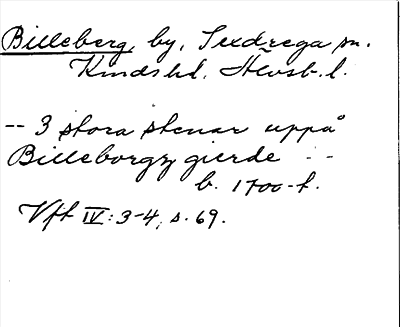 Billeberg, by, Sexdrega sn.
Kinds hd, Älvsb. l.
-- 3 stora stenar uppå
Billeborgz gierde --
b. 1700-t.
Vft IV: 3-4, s. 69.